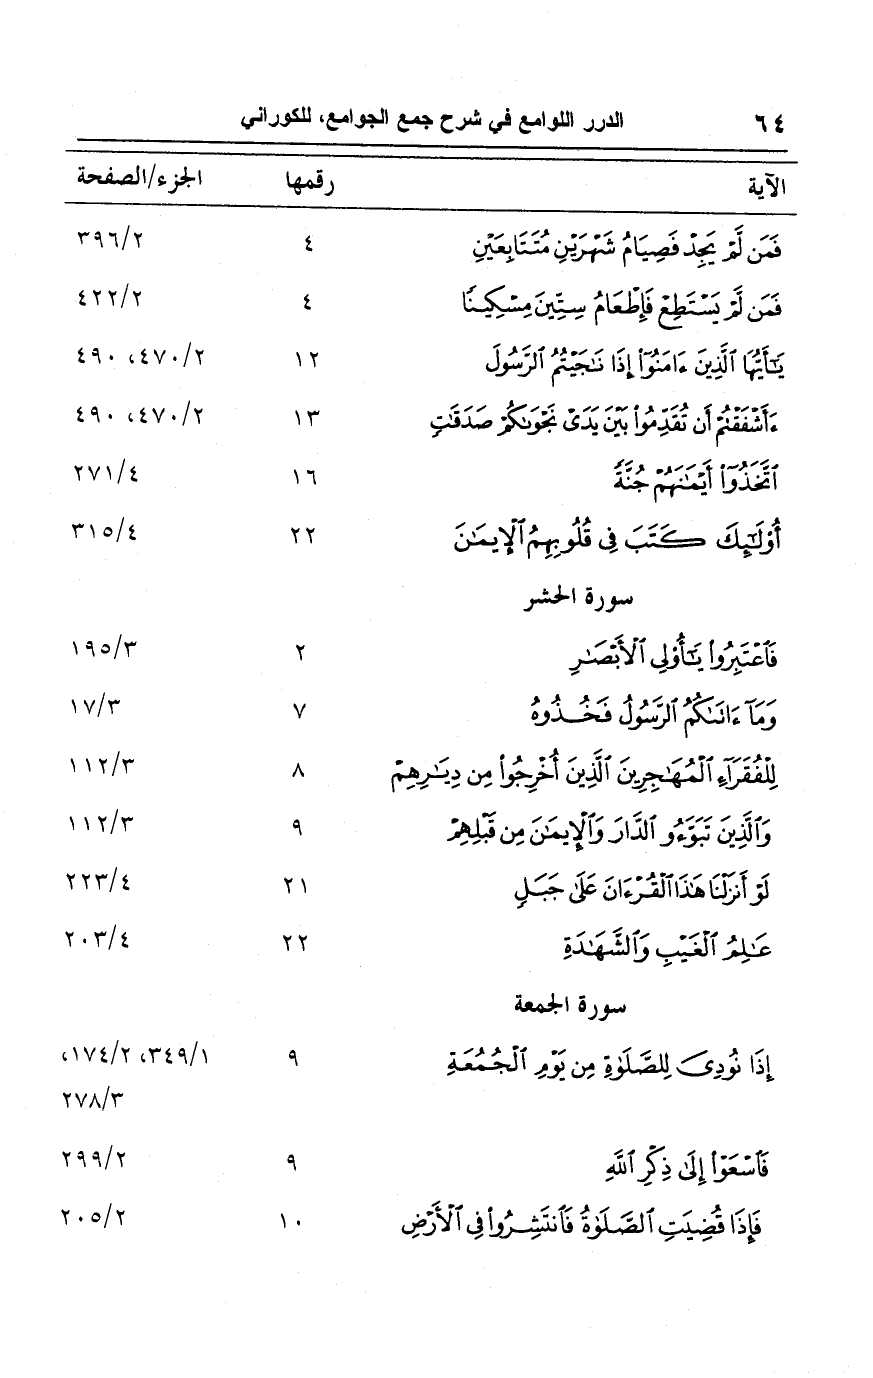 ٦٤ الدرر اللوامع في شرح جمع الجوامع، للكوراني
الآية رقمها الجزء/الصفحة
فَمَن لَّمْ يَجِدْ فَصِيَامُ شَهْرَيْنِ مُتَتَابِعَيْنِ ٤ ٣٩٦/٢
فَمَن لَّمْ يَسْتَطِعْ فَإِطْعَامُ سِتِّينَ مِسْكِينًا ٤ ٤٢٢/٢
يَٰٓأَيُّهَا ٱلَّذِينَ ءَامَنُوٓا۟ إِذَا نَٰجَيْتُمُ ٱلرَّسُولَ ١٢ ٤٧٠/٢، ٤٩٠
ءَأَشْفَقْتُمْ أَن تُقَدِّمُوا۟ بَيْنَ يَدَىْ نَجْوَىٰكُمْ صَدَقَٰتٍ ١٣ ٤٧٠/٢، ٤٩٠
ٱتَّخَذُوٓا۟ أَيْمَٰنَهُمْ جُنَّةً ١٦ ٢٧١/٤
أُو۟لَٰٓئِكَ كَتَبَ فِى قُلُوبِهِمُ ٱلْإِيمَٰنَ ٢٢ ٣١٥/٤
سورة الحشر
فَٱعْتَبِرُوا۟ يَٰٓأُو۟لِى ٱلْأَبْصَٰرِ ٢ ١٩٥/٣
وَمَآ ءَاتَىٰكُمُ ٱلرَّسُولُ فَخُذُوهُ ٧ ١٧/٣
لِلْفُقَرَآءِ ٱلْمُهَٰجِرِينَ ٱلَّذِينَ أُخْرِجُوا۟ مِن دِيَٰرِهِمْ ٨ ١١٢/٣
وَٱلَّذِينَ تَبَوَّءُو ٱلدَّارَ وَٱلْإِيمَٰنَ مِن قَبْلِهِمْ ٩ ١١٢/٣
لَوْ أَنزَلْنَا هَٰذَا ٱلْقُرْءَانَ عَلَىٰ جَبَلٍ ٢١ ٢٢٣/٤
عَٰلِمُ ٱلْغَيْبِ وَٱلشَّهَٰدَةِ ٢٢ ٢٠٣/٤
سورة الجمعة
إِذَا نُودِىَ لِلصَّلَوٰةِ مِن يَوْمِ ٱلْجُمُعَةِ ٩ ٣٤٩/١، ١٧٤/٢،
٢٧٨/٣
فَٱسْعَوْا۟ إِلَىٰ ذِكْرِ ٱللَّهِ ٩ ٢٩٩/٢
فَإِذَا قُضِيَتِ ٱلصَّلَوٰةُ فَٱنتَشِرُوا۟ فِى ٱلْأَرْضِ ١٠ ٢٠٥/٢